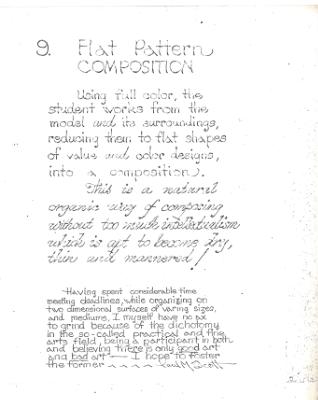 9. Flat Pattern
COMPOSITION
Using full color, the
student works from the
model and its surroundings,
reducing them to flat shapes
of value and color designs,
into a composition.
This is a natural
organic way of composing
without too much intellectualism
which is apt to become dry,
thin and mannered!
Having spent considerable time
meeting deadlines, while organizing on
two dimensional surfaces of varing sizes,
and mediums, I myself have no ax
to grind because of the dichotomy
in the so-called practical and fine
arts field, being a participant in both
and believing there is only good art
and bad art — I hope to foster
the former